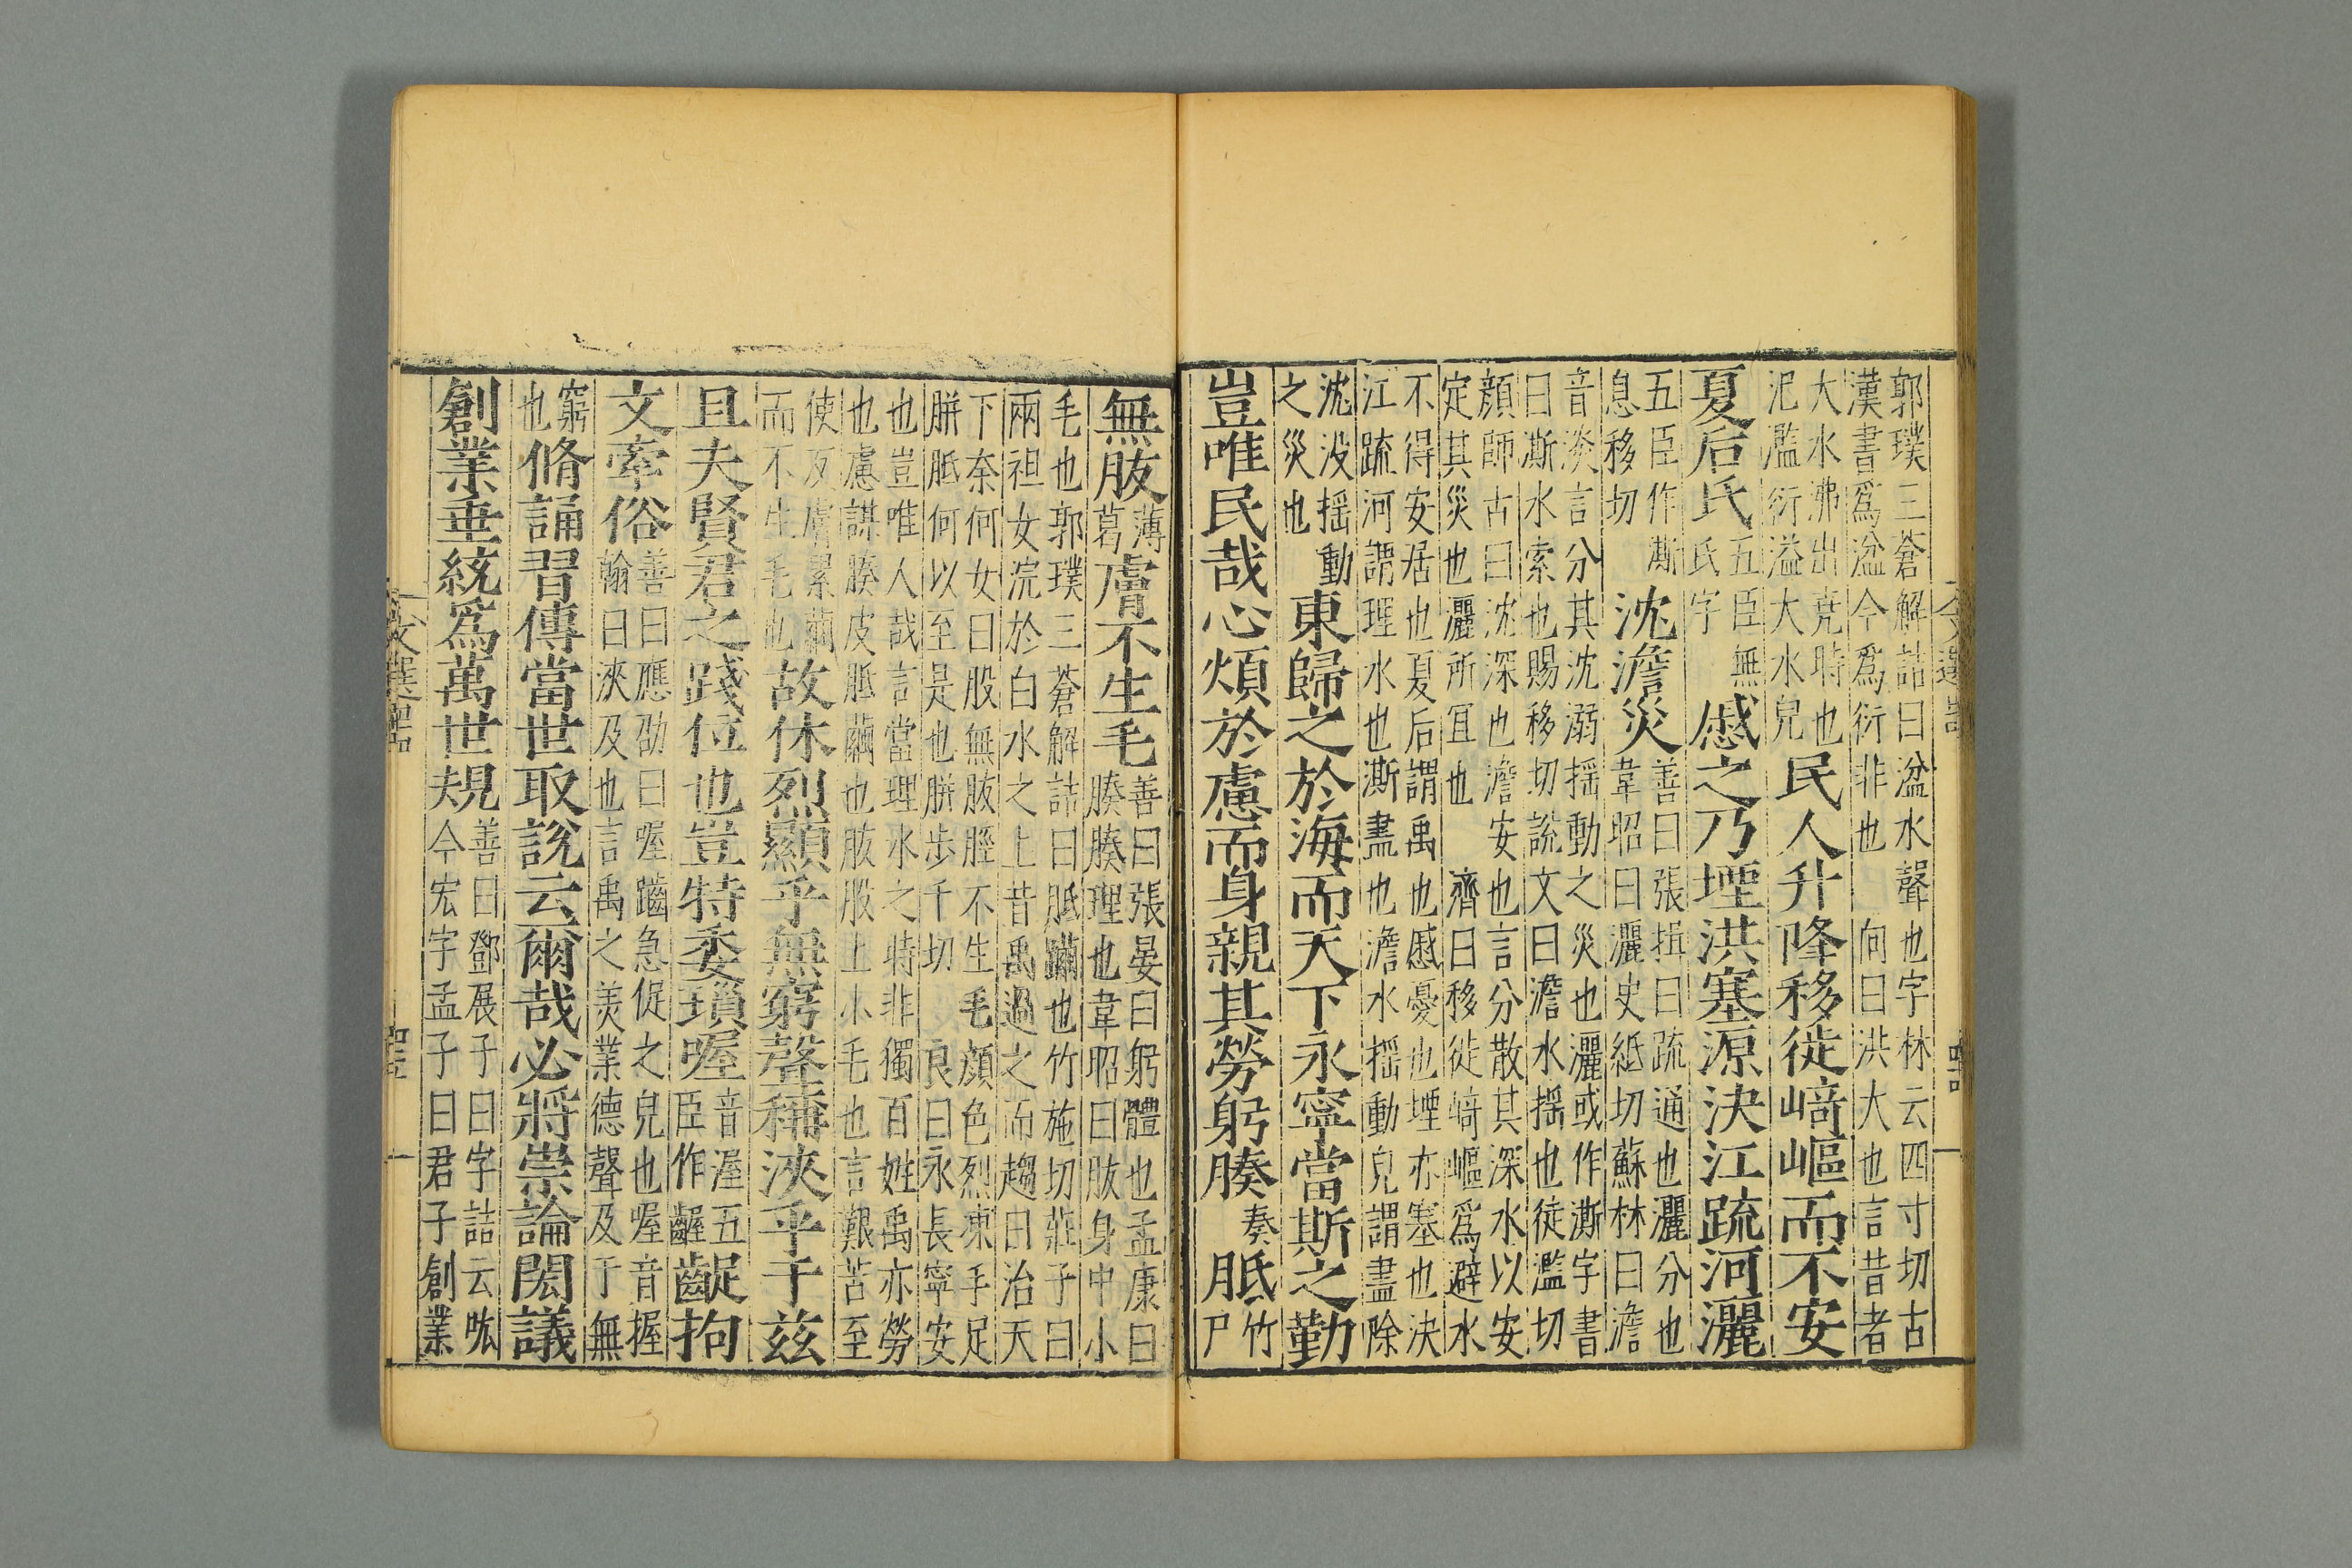 郭璞三蒼解詁曰湓水聲也字林云四寸切古
漢書爲湓今爲衍非也 向曰洪大也言昔者
大水沸出堯時也
氾濫衍溢大水皃
民人升降移徙崎嶇而不安
夏后氏
五臣無
氏字
慼之乃堙洪塞源決江疏河灑
五臣作澌
息移切
沈澹災
善曰張揖曰疏通也灑分也
韋昭曰灑史紙切蘇林曰澹
音淡言分其沈溺搖動之災也灑或作澌字書
曰澌水索也賜移切說文曰澹水搖也徒濫切
顏師古曰沈深也澹安也言分散其深水以安
定其災也灑所宜也 濟曰移徙崎嶇爲避水
不得安居也夏后謂禹也慼憂也堙亦塞也決
江疏河謂理水也澌盡也澹水搖動皃謂盡除
沈没搖動
之災也
東歸之於海而天下永寧當斯之勤
豈唯民哉心煩於慮而身親其勞躬腠
奏
胝
竹
尸
無胈
薄
葛
膚不生毛
善曰張晏曰躬體也孟康曰
腠腠理也韋昭曰胈身中小
毛也郭璞三蒼解詁曰胝躢也竹施切莊子曰
兩袒女浣於白水之上昔禹過之而趨曰治天
下奈何女曰股無胈脛不生毛顏色烈凍手足
胼胝何以至是也胼步千切 良曰永長寧安
也豈唯人哉言當理水之時非獨百姓禹亦勞
也慮謀腠皮胝繭也胈股上小毛也言艱苦至
使及膚累繭
而不生毛也
故休烈顯乎無窮聲稱浹乎于茲
且夫賢君之踐位也豈特委瑣喔
音渥五
臣作齷
齪拘
文牽俗
善曰應劭曰喔齱急促之皃也喔音握
翰曰浹及也言禹之美業德聲及于無
窮
也
脩誦習傳當世取說云爾哉必將崇論閎議
創業垂統爲萬世規
善曰鄧展子曰字詁云吰
今宏字孟子曰君子創業